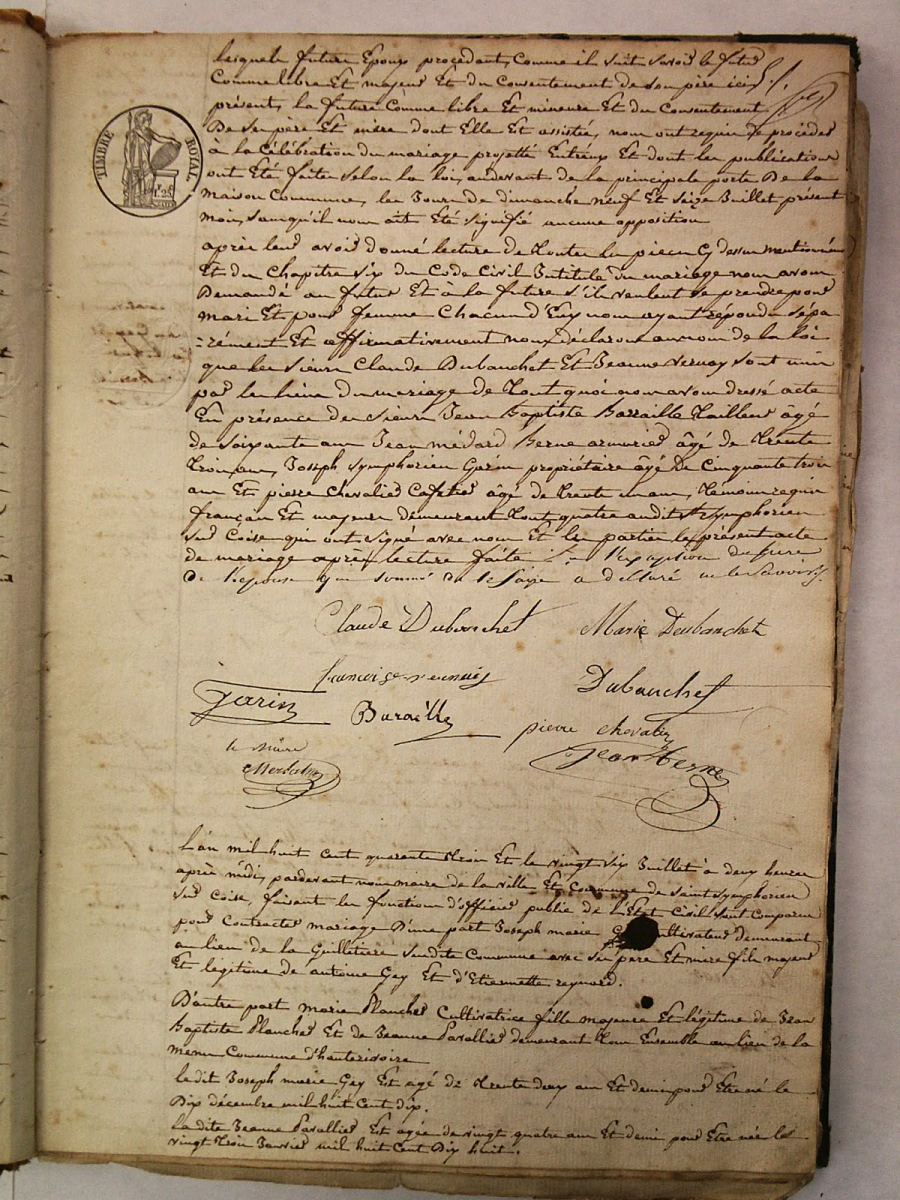 lesquels futurs Epoux procédant, Comme il suit savoir le futur
Comme libre Et majeur Et du Consentement de son père ici
présent, la future Comme libre Et mineure Et du Consentement
De ses père Et mère dont Elle Et assistée, nous ont requis de procéder
à la Célébration du mariage projetté Entreux Et dont les publications
ont Eté faites selon la loi, audevant de la principale porte De la
maison Commune, les Jours de dimanche neuf Et seize Juillet présent
mois, sansqu'il nous ait Eté signifié aucune opposition
TIMBRE ROYAL
après leurs avoir donné lecture de Toutes les pièces Cy dessus mentionnées
Et du Chapitre six du Code Civil Intitulé du mariage nous avons
Demandé au futur Et à la future s'ils veulent se prendre pour
mari Et pour femme Chacun d'Eux nous ayant répondu sépa
=rément Et affirmativement nous déclarons au nom de la loi
que les sieurs Claude Dubanchet Et Jeanne Vernay sont unis
par les liens du mariage de Tout quoi nous avons dressé acte
En présence des sieurs Jean Baptiste Barraille Tailleur âgé
de soixante ans Jean médard Berne armurier âgé de Trente
Trois ans, Joseph symphorien Garin propriétaire âgé de Cinquante trois
ans Et pierre Chevalier Cafetier âgé de Trente un ans, Témoins requis
français Et majeurs demeurant Tout quatre audit St symphorien
sur Coise qui ont signé avec nous Et les parties le présent acte
de mariage après lecture faite à l'exception du père
de l'épouse qui sommé de le faire a déclaré ne le savoir
Claude Dubanchet Marie Dubanchet
françoise vernay Dubanchet
Garin Baraille pierre chevalier
le Maire Jean Berne
L'an mil huit cent quarante Trois Et le vingt six Juillet à deux heures
après midi, pardevant nous maire de la ville Et Commune de Saint symphorien
sur Coise, faisant les fonctions d'officier public de l'Etat Civil sont comparus
pour Contracter mariage D'une part Joseph marie Cultivateur demeurant
au lieu de la Guilletière susdite Commune avec ses père Et mère fils majeur
Et légitime de antoine Gay Et d'Etiennette reynard.
D'autre part marie Plancher Cultivatrice fille majeure Et légitime de Jean
Baptiste Plancher Et de Jeanne Pavallier demeurant Tous Ensemble au lieu de la
menue Commune d'hauterivoire
le dit Joseph marie Gay Est agé de Trente deux ans Et demi pour Etre né le
Dix décembre mil huit Cent dix.
La dite Jeanne Pavallier Est agée de vingt quatre ans Et demi pour Etre née le
vingt Trois Janvier mil huit Cent Dix huit.